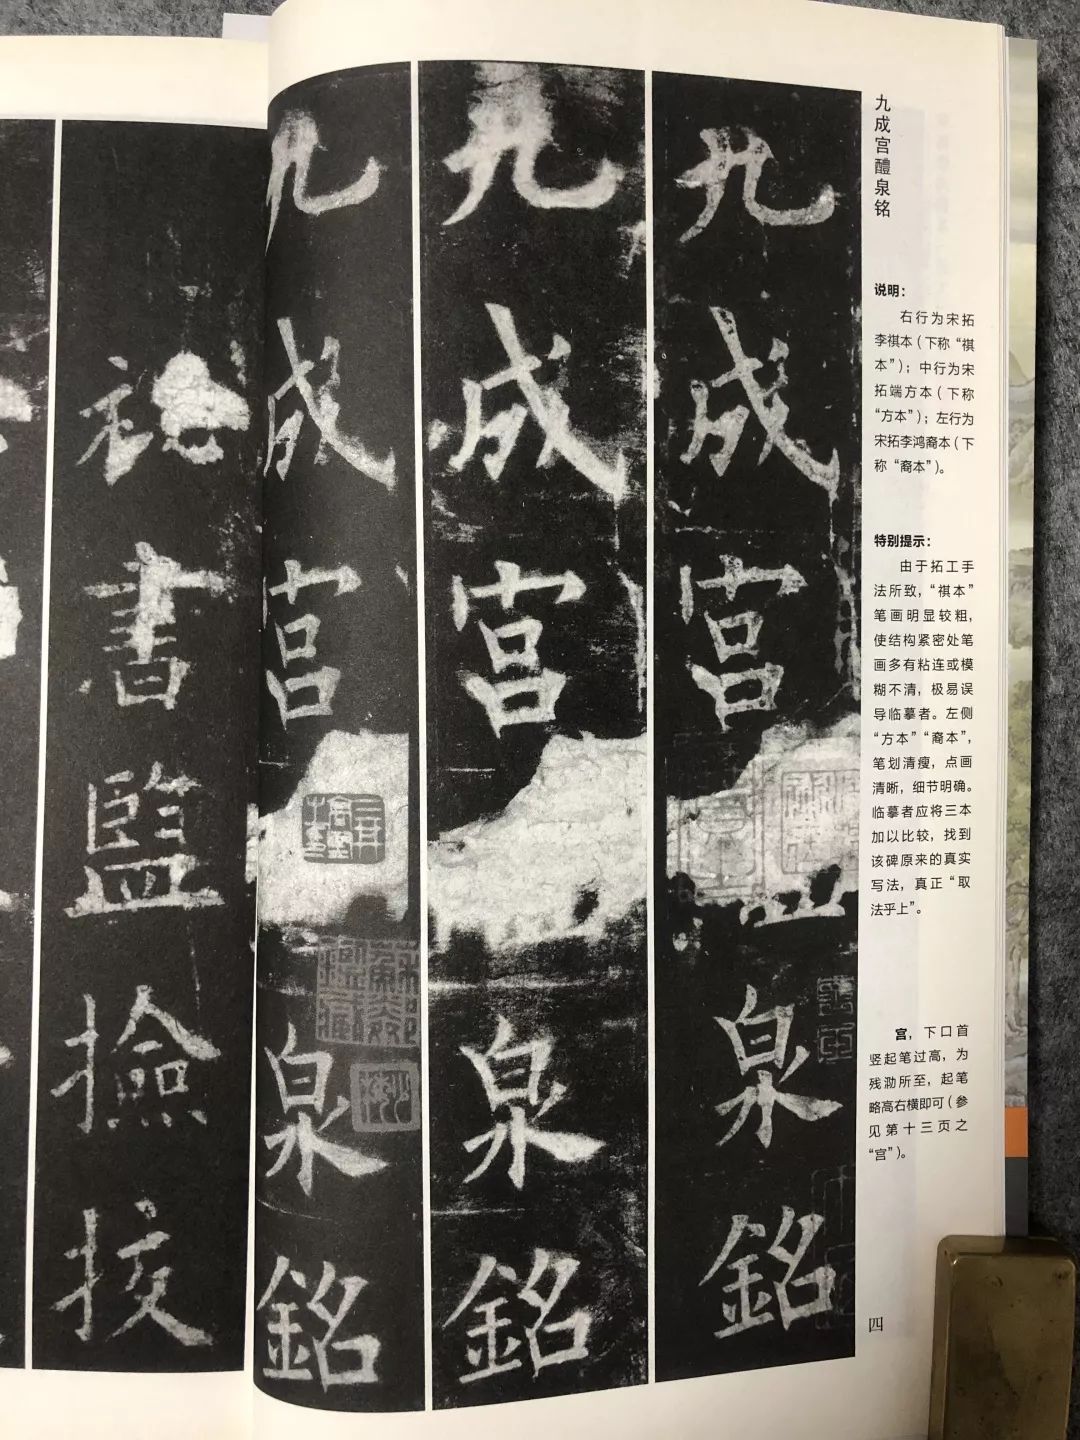 九成宫醴泉铭
说明：
右行为宋拓
李祺本（下称“祺
本”）；中行为宋
拓端方本（下称
“方本”）；左行为
宋拓李鸿裔本（下
称“裔本”）。
特别提示：
由于拓工手
法所致，“祺本”
笔画明显较粗，
使结构紧密处笔
画多有粘连或模
糊不清，极易误
导临摹者。左侧
“方本”“裔本”，
笔划清瘦，点画
清晰，细节明确。
临摹者应将三本
加以比较，找到
该碑原来的真实
写法，真正“取
法乎上”。
宫，下口首
竖起笔过高，为
残泐所至，起笔
略高右横即可（参
见第十三页之
“宫”）。
四
九成宮泉銘
九成宮泉銘
九成宮泉銘
祕書監撿挍